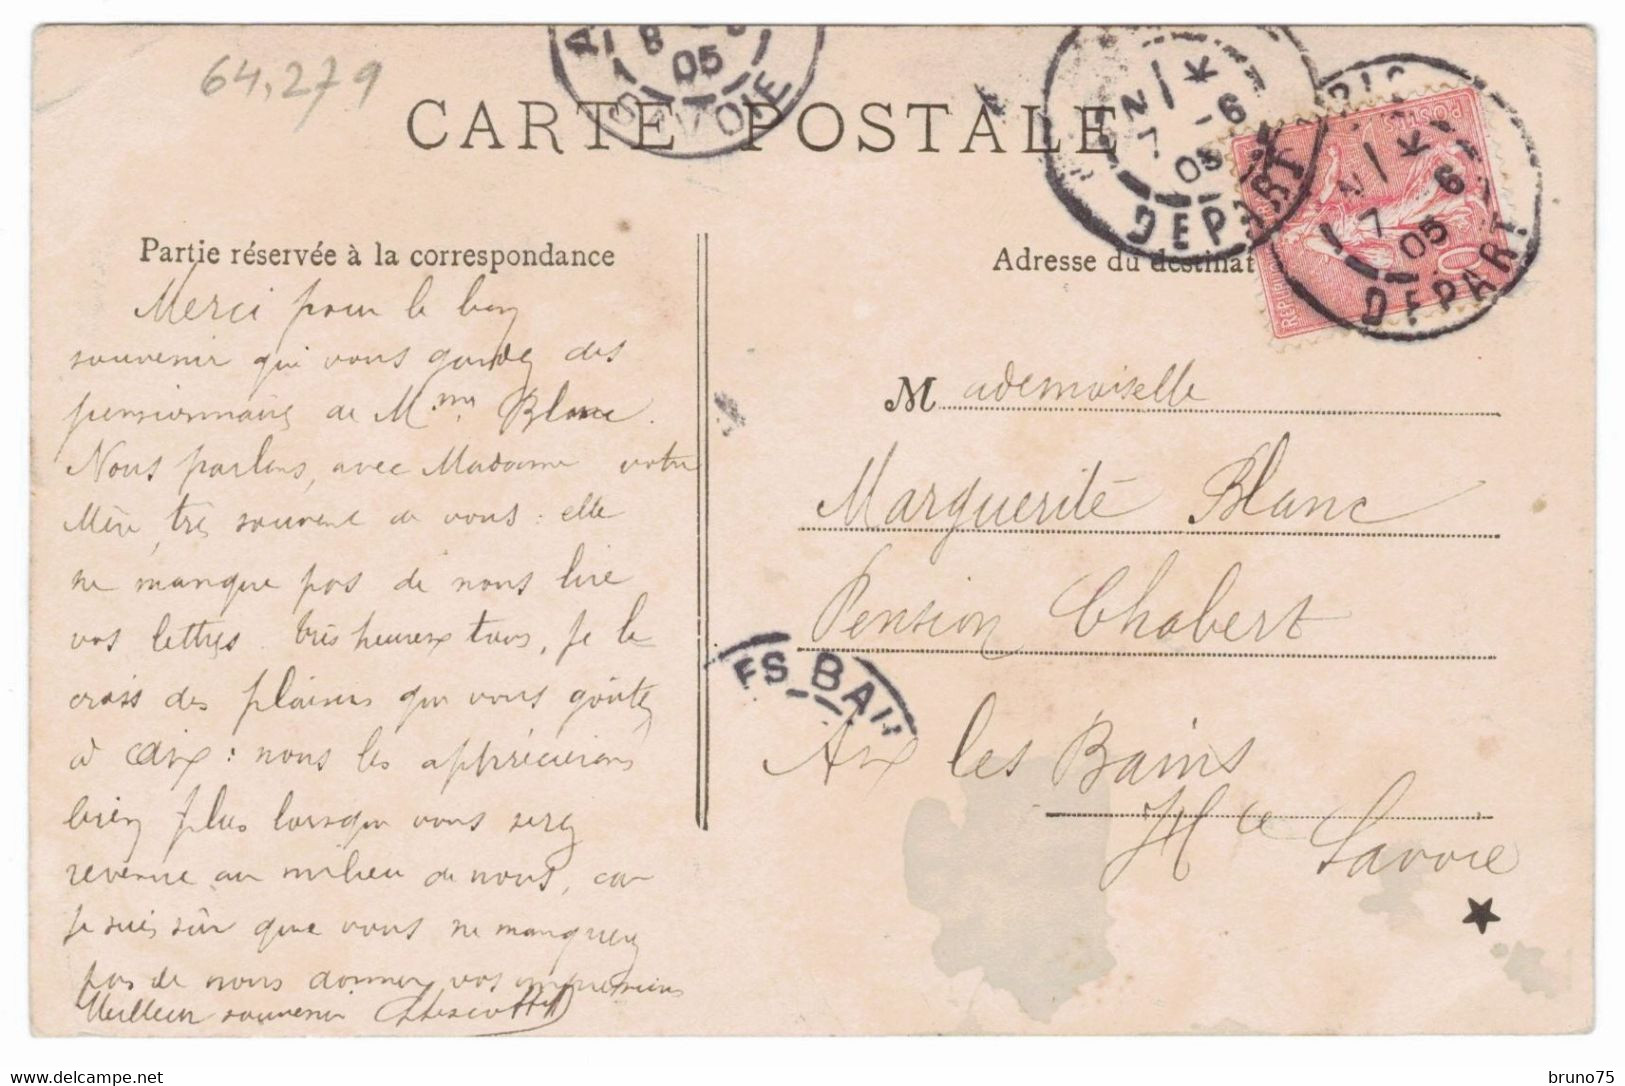 64,279
CARTE POSTALE
05
SAVOIE
7 - 6
05
DEPART
7 6
05
DEPART
POSTES
Partie réservée à la correspondance
Merci pour le bon
souvenir que vous gardez des
pensionnaires de Mme Blanc.
Nous parlons, avec Madame votre
Mère, très souvent de vous : elle
ne manque pas de nous lire
vos lettres très heureux tous, je le
crois des plaisirs que vous goûtez
à Aix : nous les apprécierons
bien plus lorsque vous serez
revenue au milieu de nous, car
je suis sûr que vous ne manquerez
pas de nous donner vos impressions
Meilleur souvenir
Adresse du destinat
Mademoiselle
Marguerite Blanc
Pension Chabert
ES BAI
Aix les Bains
Hte Savoie
bruno75